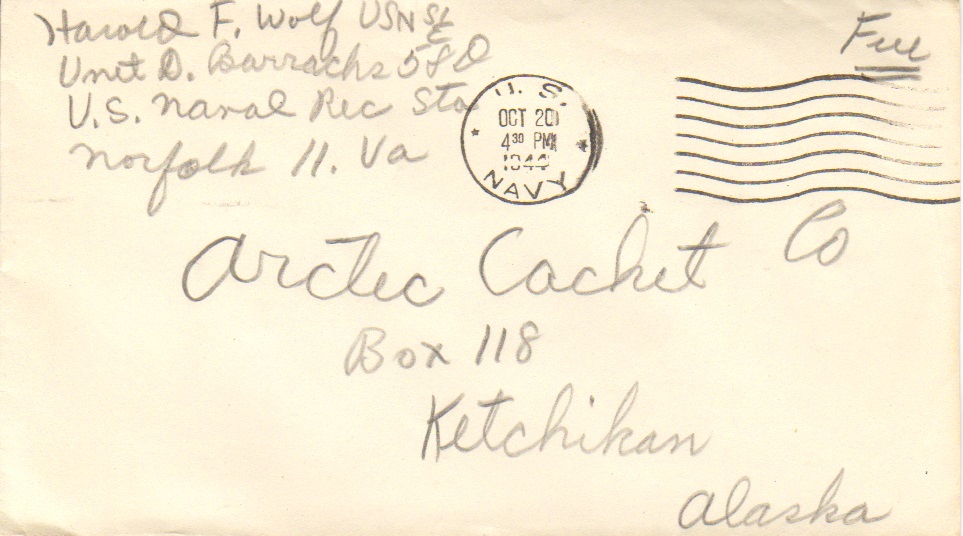 Harold F. Wolf USN
Unit D. Barracks 58D
U.S. Naval Rec Sta
Norfolk 11. Va
Free
U. S.
OCT 20
4 30 PM
1944
NAVY
Arctic Cachet Co
Box 118
Ketchikan
Alaska